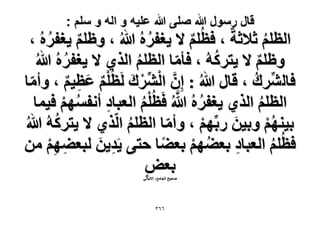 قال رسول الله صلى الله عليه و اله و سلم :
الظلمُ ثلاثةٌ ، فظُلمٌ لا يغفرُهُ اللهُ ، وظلمٌ يغفرُهُ ،
وظلمٌ لا يتركُهُ ، فأمّا الظلمُ الذي لا يغفرُهُ اللهُ
فالشِّركُ ، قال اللهُ : إِنَّ الْشِّرْكَ لَظُلْمٌ عَظِيمٌ ، وأمّا
الظلمُ الذي يغفرُهُ اللَّهُ فَظُلْمُ العبادِ أنفسَهمْ فيما
بينهُمْ وبينَ ربِّهمْ ، وأمّا الظلمُ الّذي لا يتركُهُ اللهُ
فظُلمُ العبادِ بعضُهمْ بعضًا حتى يَدِينَ لبعضِهِمْ من
بعضٍ
صحيح الجامع، الألباني
٣٦٦